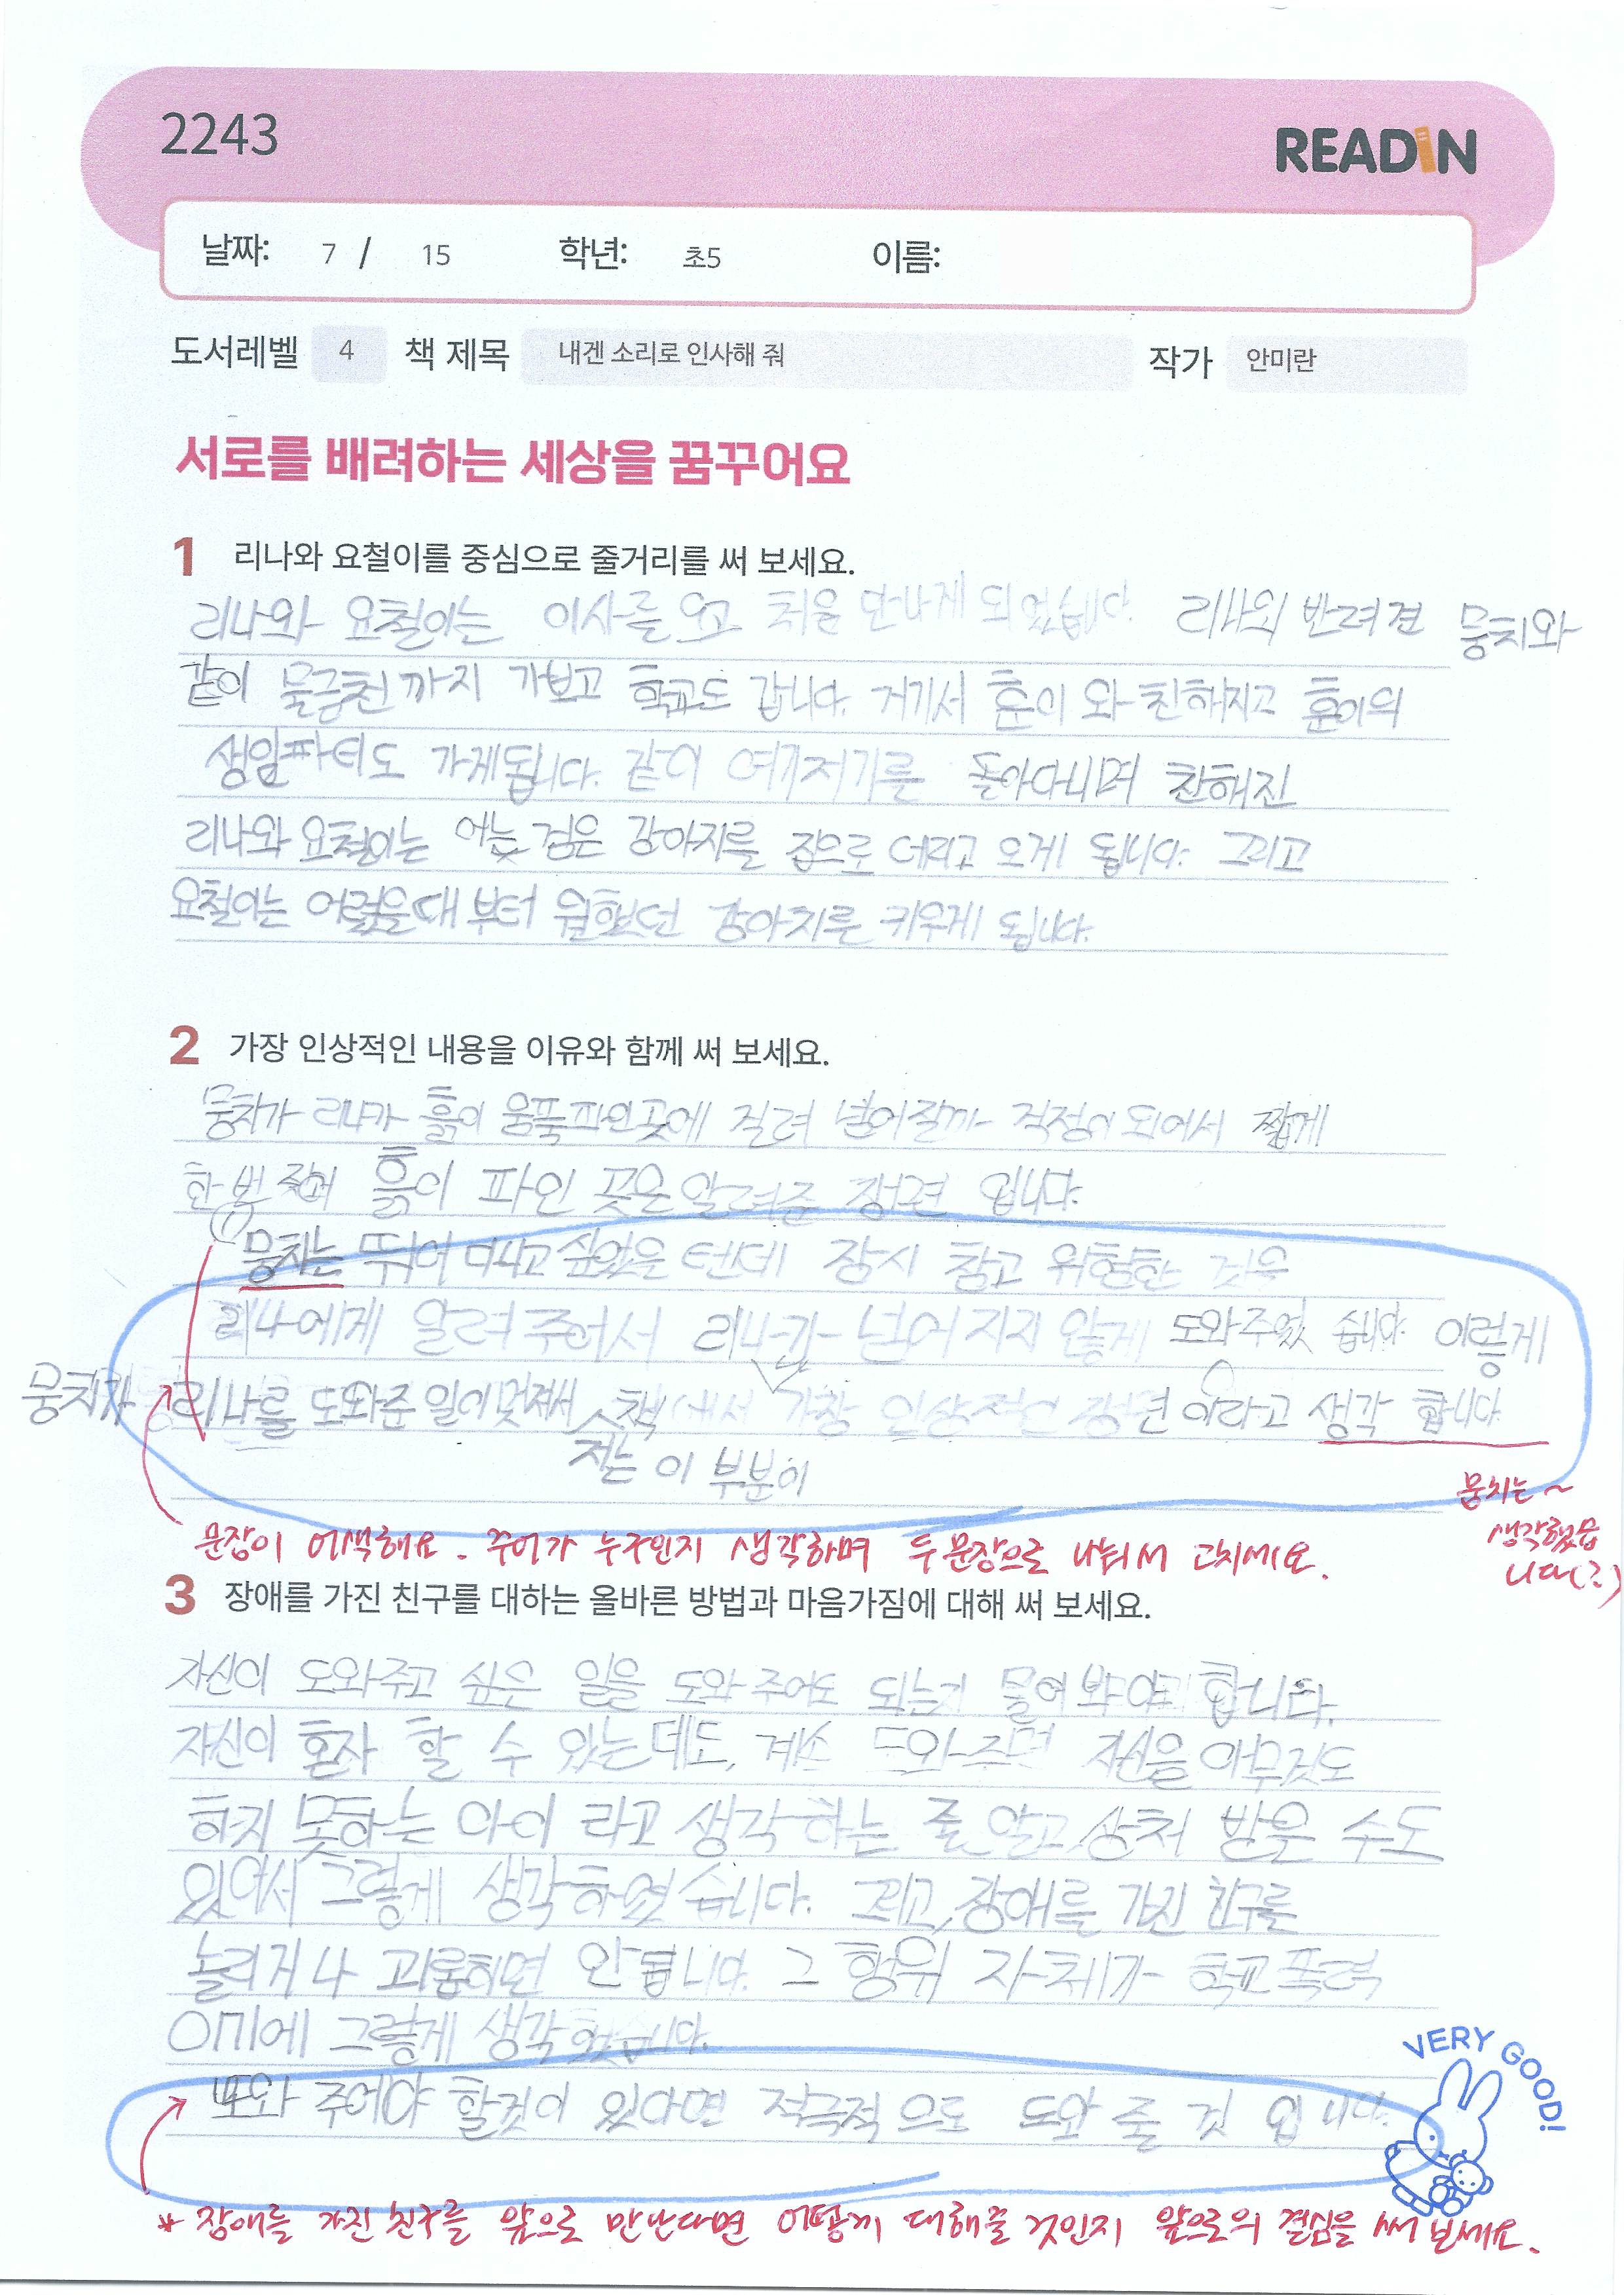 2243
READIN
날짜: 7 / 15 학년: 초5 이름:
도서레벨 4 책 제목 내겐 소리로 인사해 줘 작가 안미란
서로를 배려하는 세상을 꿈꾸어요
1 리나와 요철이를 중심으로 줄거리를 써 보세요.
리나와 요철이는 이사를 오고 처음 만나게 되었습니다. 리나의 반려견 뭉치와
같이 물궁천까지 가보고 학교도 갑니다. 거기서 훈이 와 친해지고 훈이의
생일파티도 가게됩니다. 같이 여기저기를 돌아다니며 친해진
리나와 요철이는 어느 검은 강아지를 집으로 데리고 오게 됩니다. 그리고
요철이는 어렸을때 부터 원했던 강아지를 키우게 됩니다.
2 가장 인상적인 내용을 이유와 함께 써 보세요.
뭉치가 리나가 흙이 움푹파인곳에 걸려 넘어질까 걱정이 되어서 짧게
한번 짖어 흙이 파인 곳은 알려준 장면 입니다.
뭉치는 뛰어 다니고 싶었을 텐데 잠시 참고 위험한 것을
리나에게 알려 주어서 리나가 넘어 지지 않게 도와주었 습니다. 이렇게
뭉치가 리나를 도와준 일이 멋져서 책에서 가장 인상적인 장면 이라고 생각 합니다
저는 이 부분이
뭉치는 ~
생각했습
니다(?)
문장이 어색해요. 주어가 누구인지 생각하며 두 문장으로 나눠서 고치세요.
3 장애를 가진 친구를 대하는 올바른 방법과 마음가짐에 대해 써 보세요.
자신이 도와주고 싶은 일을 도와 주어도 되는지 물어 봐야 합니다.
자신이 혼자 할 수 있는데도, 계속 도와주면 자신을 아무것도
하지 못하는 아이 라고 생각하는 줄 알고 상처 받을 수도
있어서 그렇게 생각하였습니다. 그리고, 장애를 가진 친구를
놀리거나 괴롭히면 안됩니다. 그 행위 자체가 학교폭력
이기에 그렇게 생각했습니다.
또와 주어야 할것이 있다면 적극적 으로 도와 줄 것 입니다.
VERY GOOD!
* 장애를 가진 친구를 앞으로 만난다면 어떻게 대해줄 것인지 앞으로의 결심을 써 보세요.